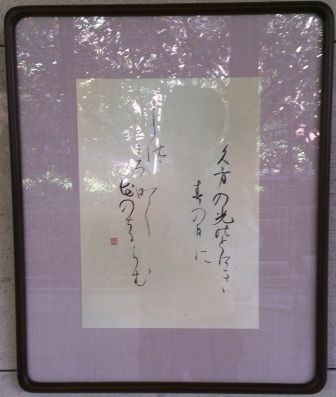 久方の光能とけき
春の日に
しつこころなく
花のちるらむ